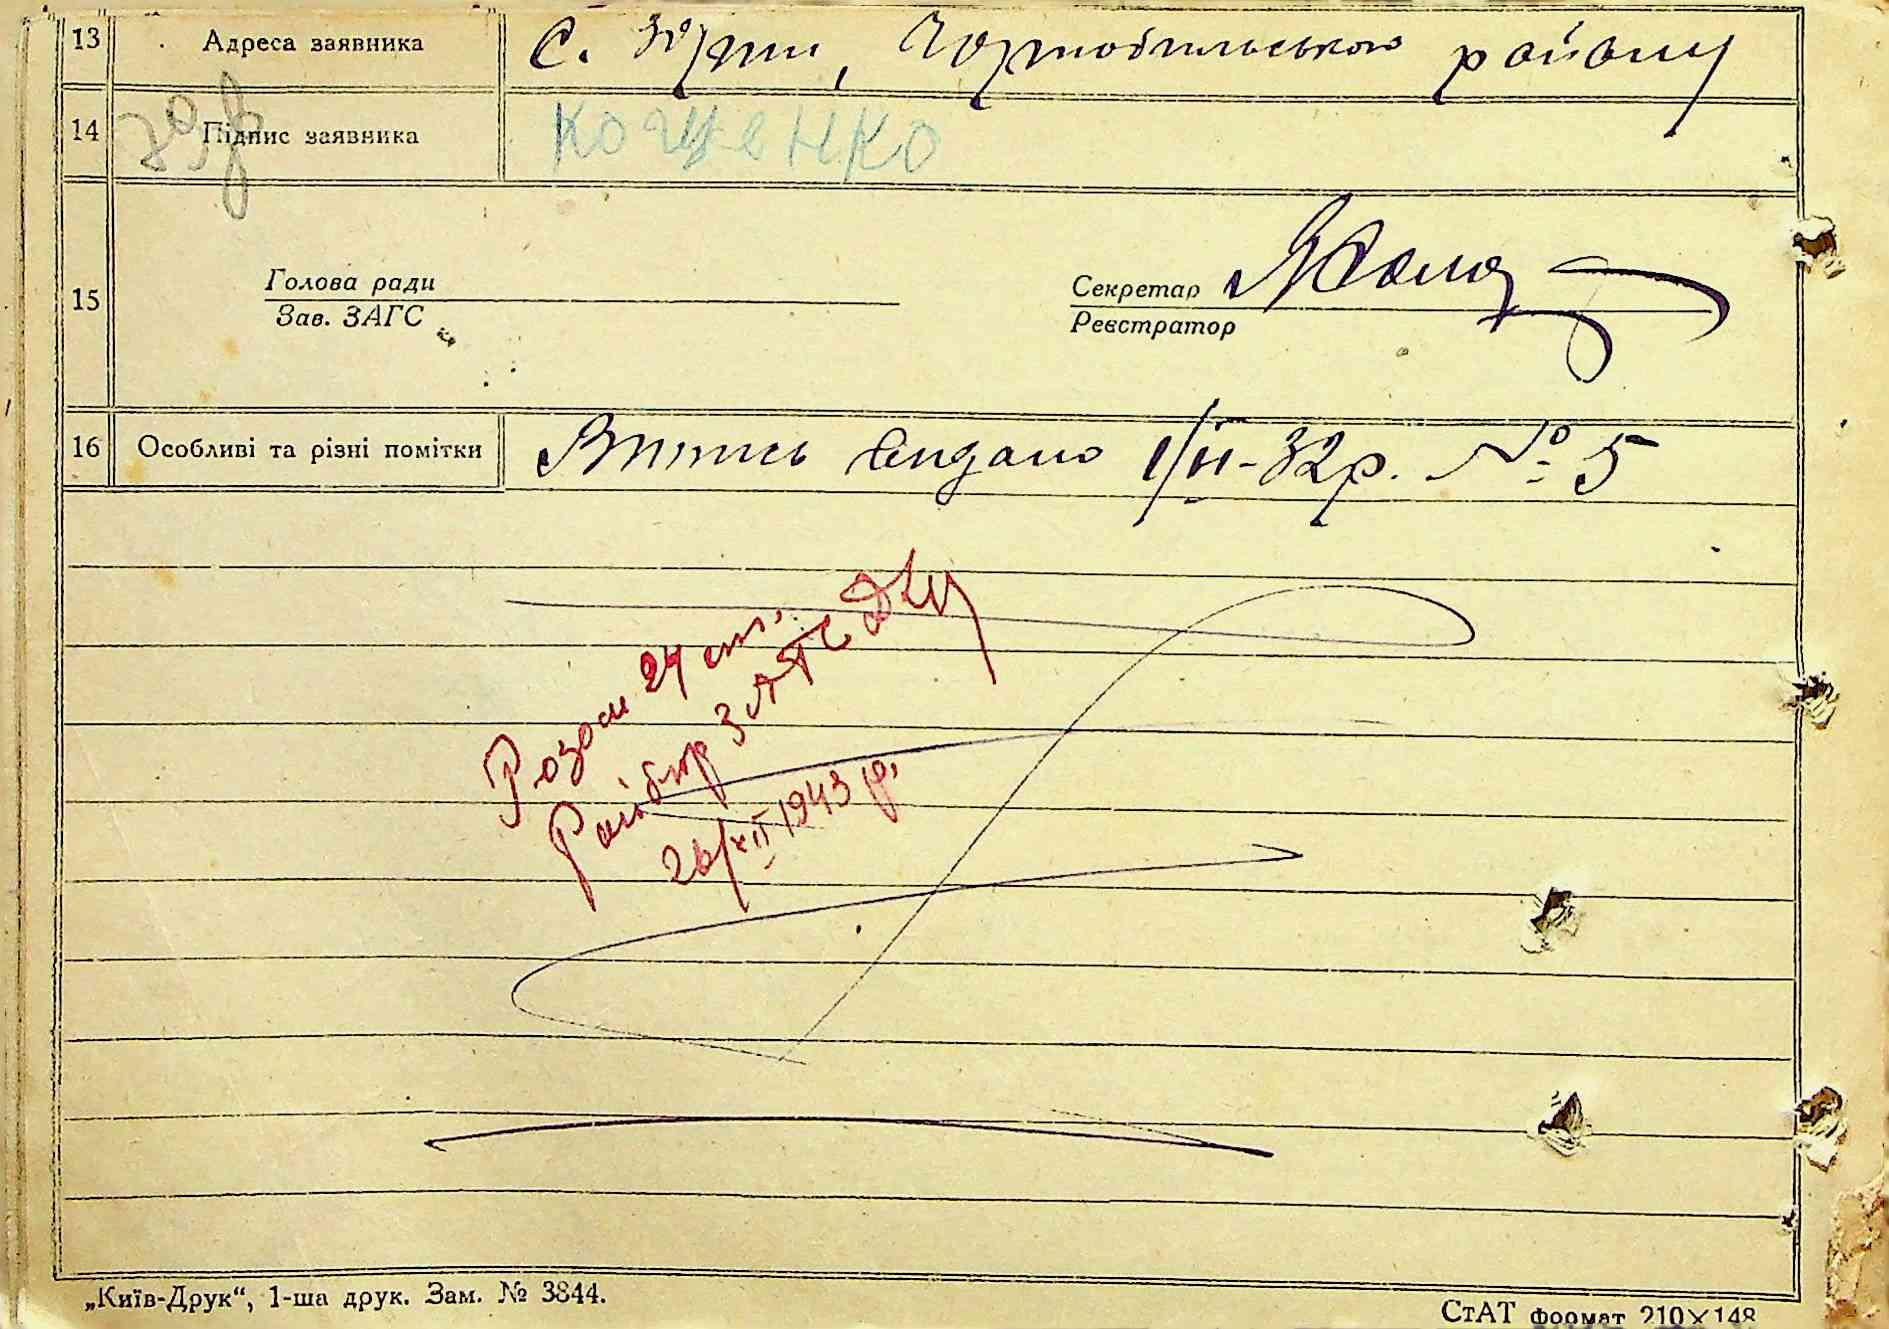 13 Адреса заявника С. Зорин, Чорнобильського району
14 Підпис заявника КОЩЕНКО
15 Голова ради
Зав. ЗАГС
Секретар
Реєстратор
16 Особливі та різні помітки Витись видано 1/II-32р. № 5
24 ст.
Райбюр ЗАГС
26/XII 1943 р.
„Київ-Друк“, 1-ша друк. Зам. № 3844.
СтАТ формат 210×148